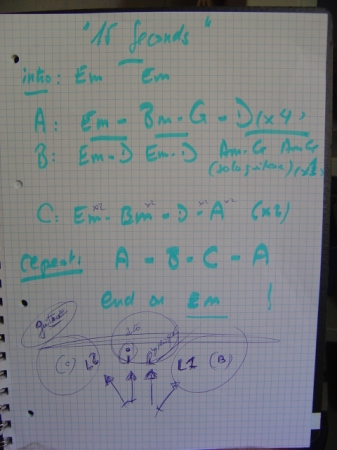 "15 Seconds"
intro: Em Em
A: Em - Bm - G - D (x4)
B: Em - D Em - D Am - G Am G
(solo guitare)
x2 x2 x2 x2
C: Em - Bm - D - A (x2)
repeat: A - B - C - A
end on Em !
guitare
(C) L2 L1 (B)